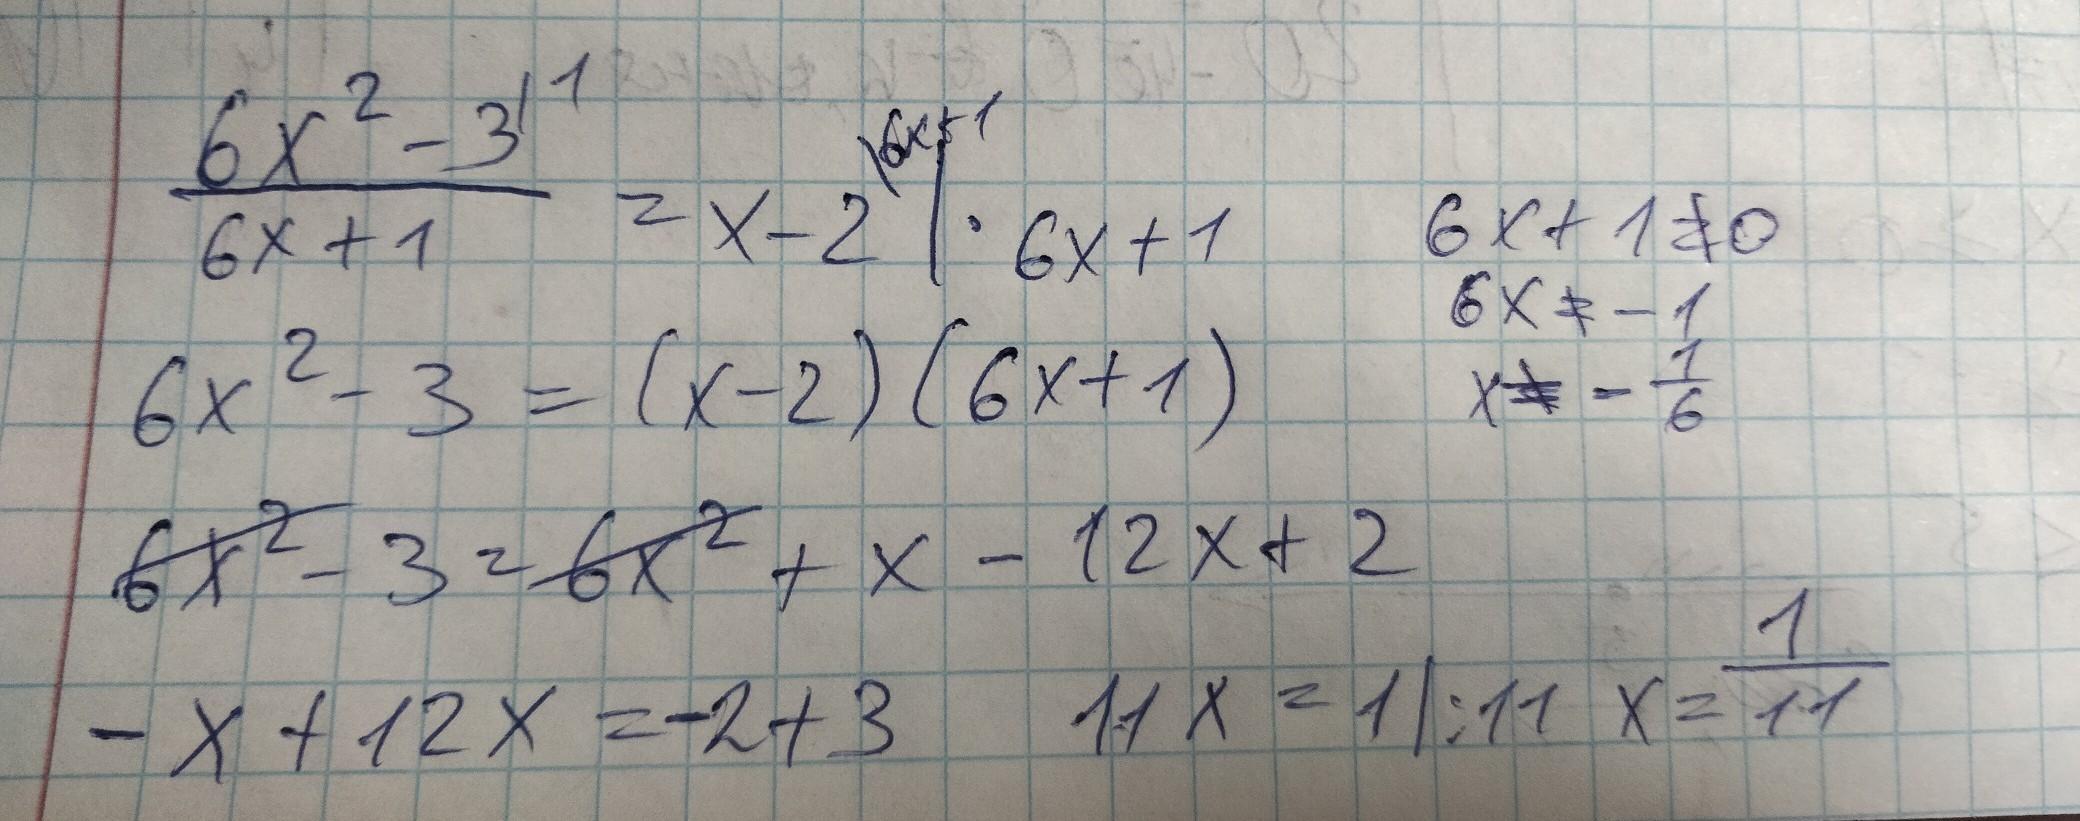 6x² - 3\1 / 6x + 1 = x - 2\6x+1 | · 6x + 1
6x + 1 ≠ 0
6x ≠ - 1
6x² - 3 = (x - 2)(6x + 1)
x ≠ - 1/6
6x² - 3 = 6x² + x - 12x + 2
- x + 12x = -2 + 3 11x = 1 |:11 x = 1/11